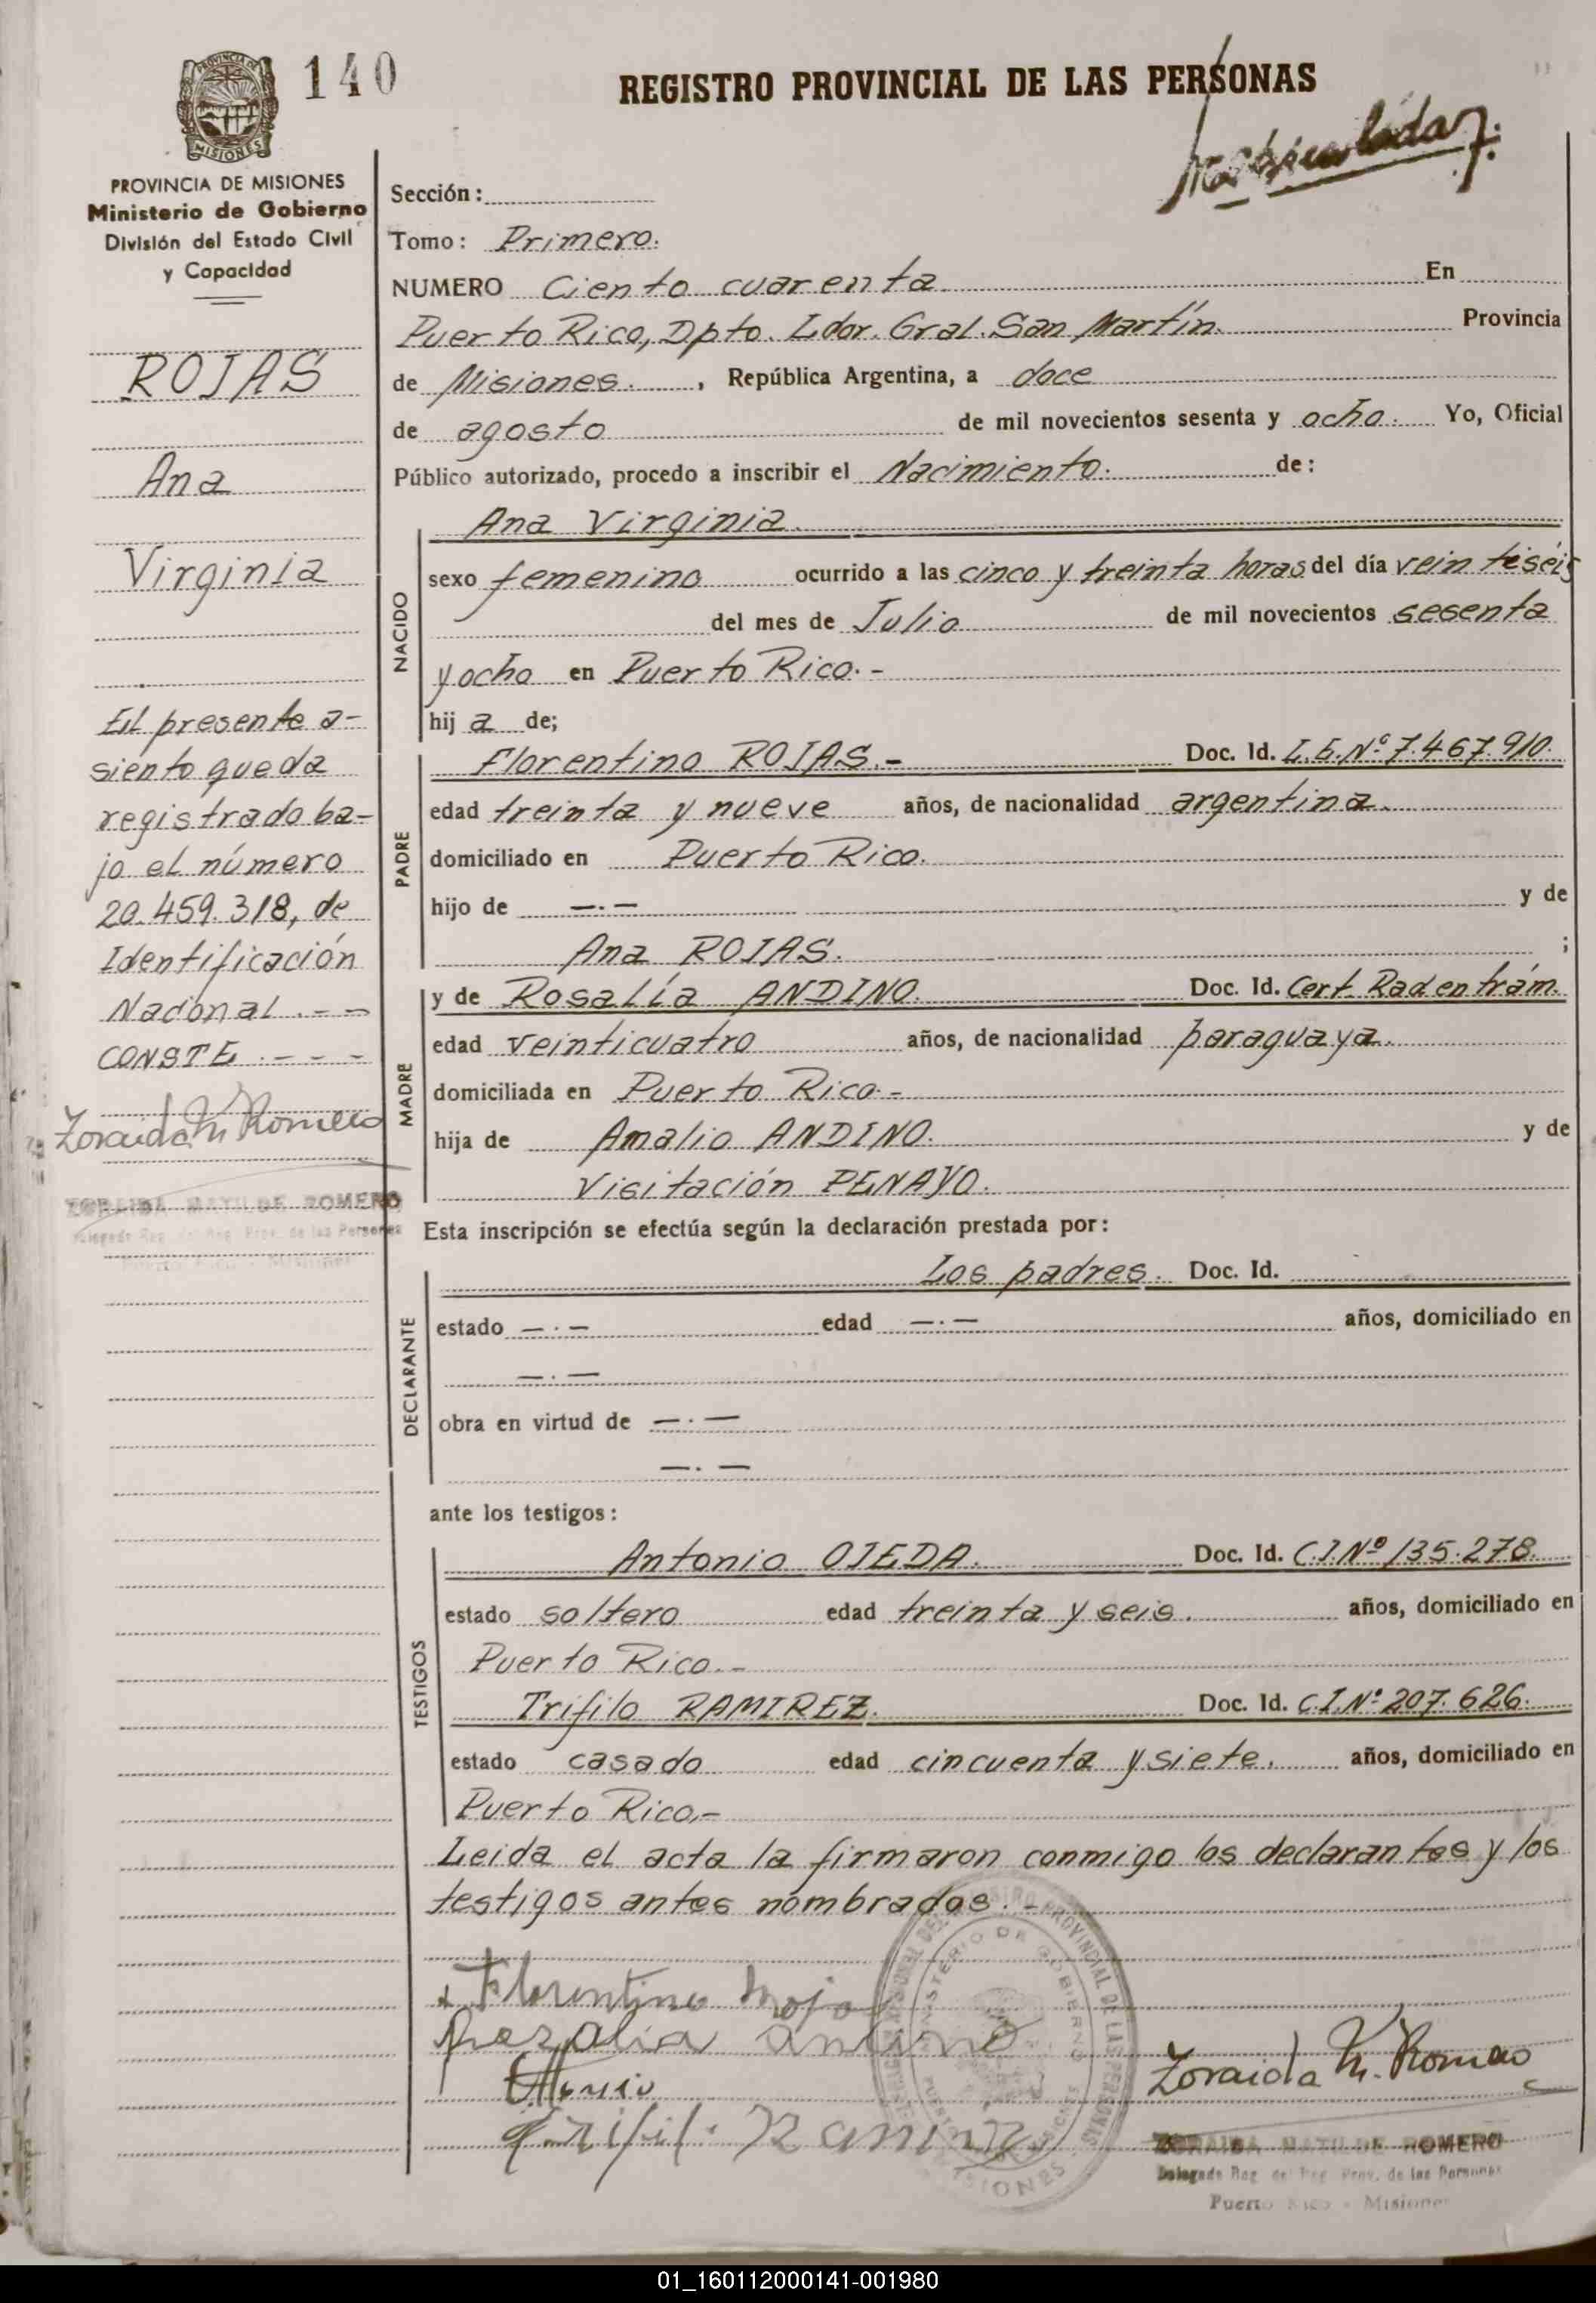 140
REGISTRO PROVINCIAL DE LAS PERSONAS
MISIONES
PROVINCIA DE MISIONES
Ministerio de Gobierno
División del Estado Civil
y Capacidad
ROJAS
Ana
Virginia
El presente a-
siento queda
registrado ba-
jo el número
20.459.318, de
Identificación
Nacional.--
CONSTE.---
Zoraida M. Romero
ZORAIDA MATILDE ROMERO
Delegada Reg. del Reg. Prov. de las Personas
Sección:
Tomo: Primero.
NUMERO Ciento cuarenta En
Puerto Rico, Dpto. Ldor. Gral. San Martín. Provincia
de Misiones. , República Argentina, a doce
de agosto de mil novecientos sesenta y ocho. Yo, Oficial
Público autorizado, procedo a inscribir el Nacimiento. de:
Ana Virginia.
NACIDO
sexo femenino ocurrido a las cinco y treinta horas del día veintiséis
del mes de Julio de mil novecientos sesenta
y ocho en Puerto Rico.-
hij a de;
PADRE
Florentino ROJAS.- Doc. Id. L.E.Nº 7.467.910.
edad treinta y nueve años, de nacionalidad argentina.
domiciliado en Puerto Rico.
hijo de —.— y de
Ana ROJAS. ;
MADRE
y de Rosalía ANDINO. Doc. Id. Cert. Rad en trám.
edad veinticuatro años, de nacionalidad paraguaya.
domiciliada en Puerto Rico.-
hija de Amalio ANDINO. y de
Visitación PENAYO.
Esta inscripción se efectúa según la declaración prestada por:
DECLARANTE
Los padres. Doc. Id.
estado —.— edad —.— años, domiciliado en
—.—
obra en virtud de —.—
—.—
ante los testigos:
TESTIGOS
Antonio OJEDA. Doc. Id. C.I.Nº 135.278.
estado soltero edad treinta y seis. años, domiciliado en
Puerto Rico.-
Trifilo RAMIREZ. Doc. Id. C.I.Nº 207.626.
estado casado edad cincuenta y siete. años, domiciliado en
Puerto Rico.-
Leida el acta la firmaron conmigo los declarantes y los
testigos antes nombrados.-
Florentino Rojas
Rozalia andino
Trifil. Ramirez
Zoraida M. Romero
ZORAIDA MATILDE ROMERO
Delegada Reg. del Reg. Prov. de las Personas
Puerto Rico - Misiones
01_160112000141-001980